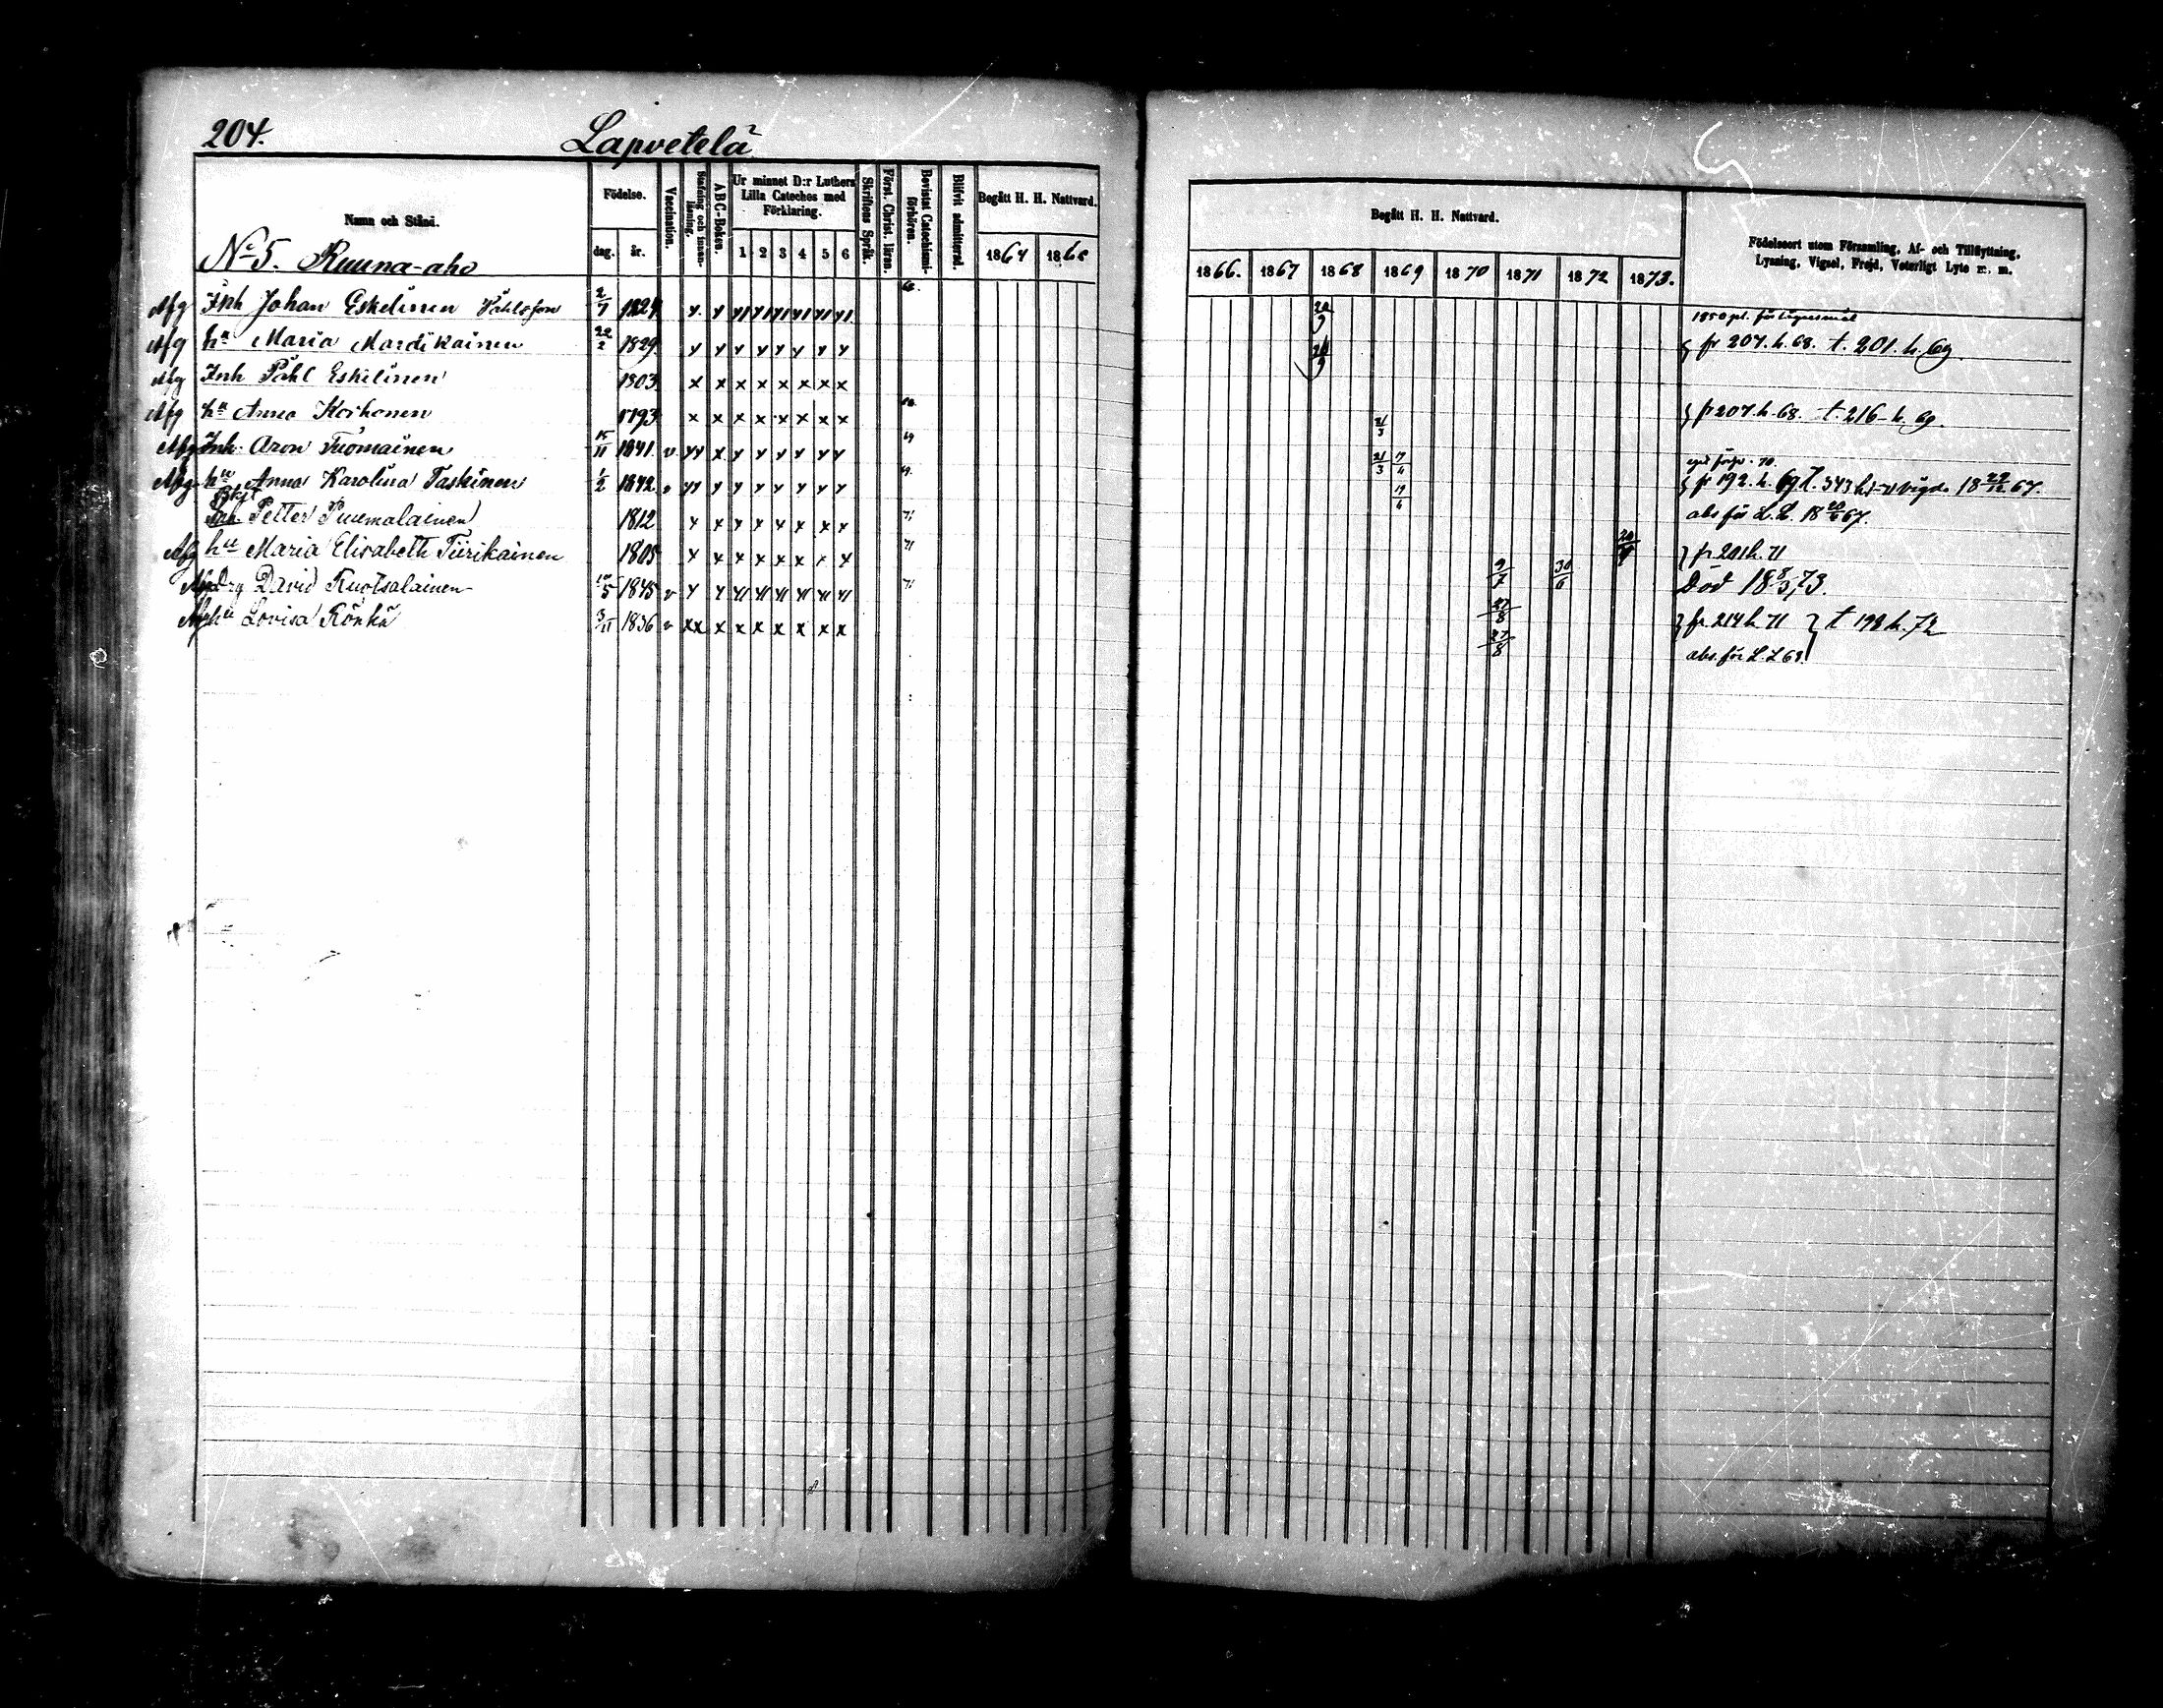 204. Lapvetelä
Namn och Stånd.
Födelse.
dag. år.
Vaccination.
Stafning och innanläsning.
ABC-Boken.
Ur minnet D:r Luthers Lilla Cateches med Förklaring.
1 2 3 4 5 6
Skriftens Språk.
Först. Christ. läran.
Bevistat Catechismi-förhören.
Blifvit admitterad.
Begått H. H. Nattvard.
1864 1865
Begått H. H. Nattvard.
1866. 1867 1868 1869 1870 1871 1872 1873.
Födelseort utom Församling, Af- och Tillflyttning,
Lysning, Vigsel, Frejd, Veterligt Lyte m. m.
No 5. Ruuna-aho
Afg Inh Johan Eskelinen Påhlsson 2/7 1824 y y 20/9 1850 pl. för
Afg hu Maria Mardikainen 22/2 1829 y y y y y y y y fr 207. h. 68. t. 201. h. 69
Afg Inh Påhl Eskelinen 1803 x x x x x x x x
Afg hu Anna Korhonen 1793 x x x x x x x x fr 207. h. 68. t. 216 h. 69.
Afg Inh. Aron Tuomainen 15/11 1841 v yy x y y y y y y 69 21/3
Afg hu Anna Karolina Taskinen 1/2 1842 v yy y y y y y y y 69. 21/3 fr 192. h. 69 t. 343 h. vigde 18 67.
Petter Puumalainen 1812 71 abs för L. L. 18 67.
Afg hu Maria Elisabeth Tiirikainen 1805 71 fr 201 h. 71
Afg Drg David Ruotsalainen 5 1845 v 71 9/7 30/6 Död 18 73.
Afg hu Lovisa Rönkä 3/11 1836 v xx x x x x x x x 27/8 fr. 214 h. 71 t 198 h. 72
27/8 abs. för L. L 68.